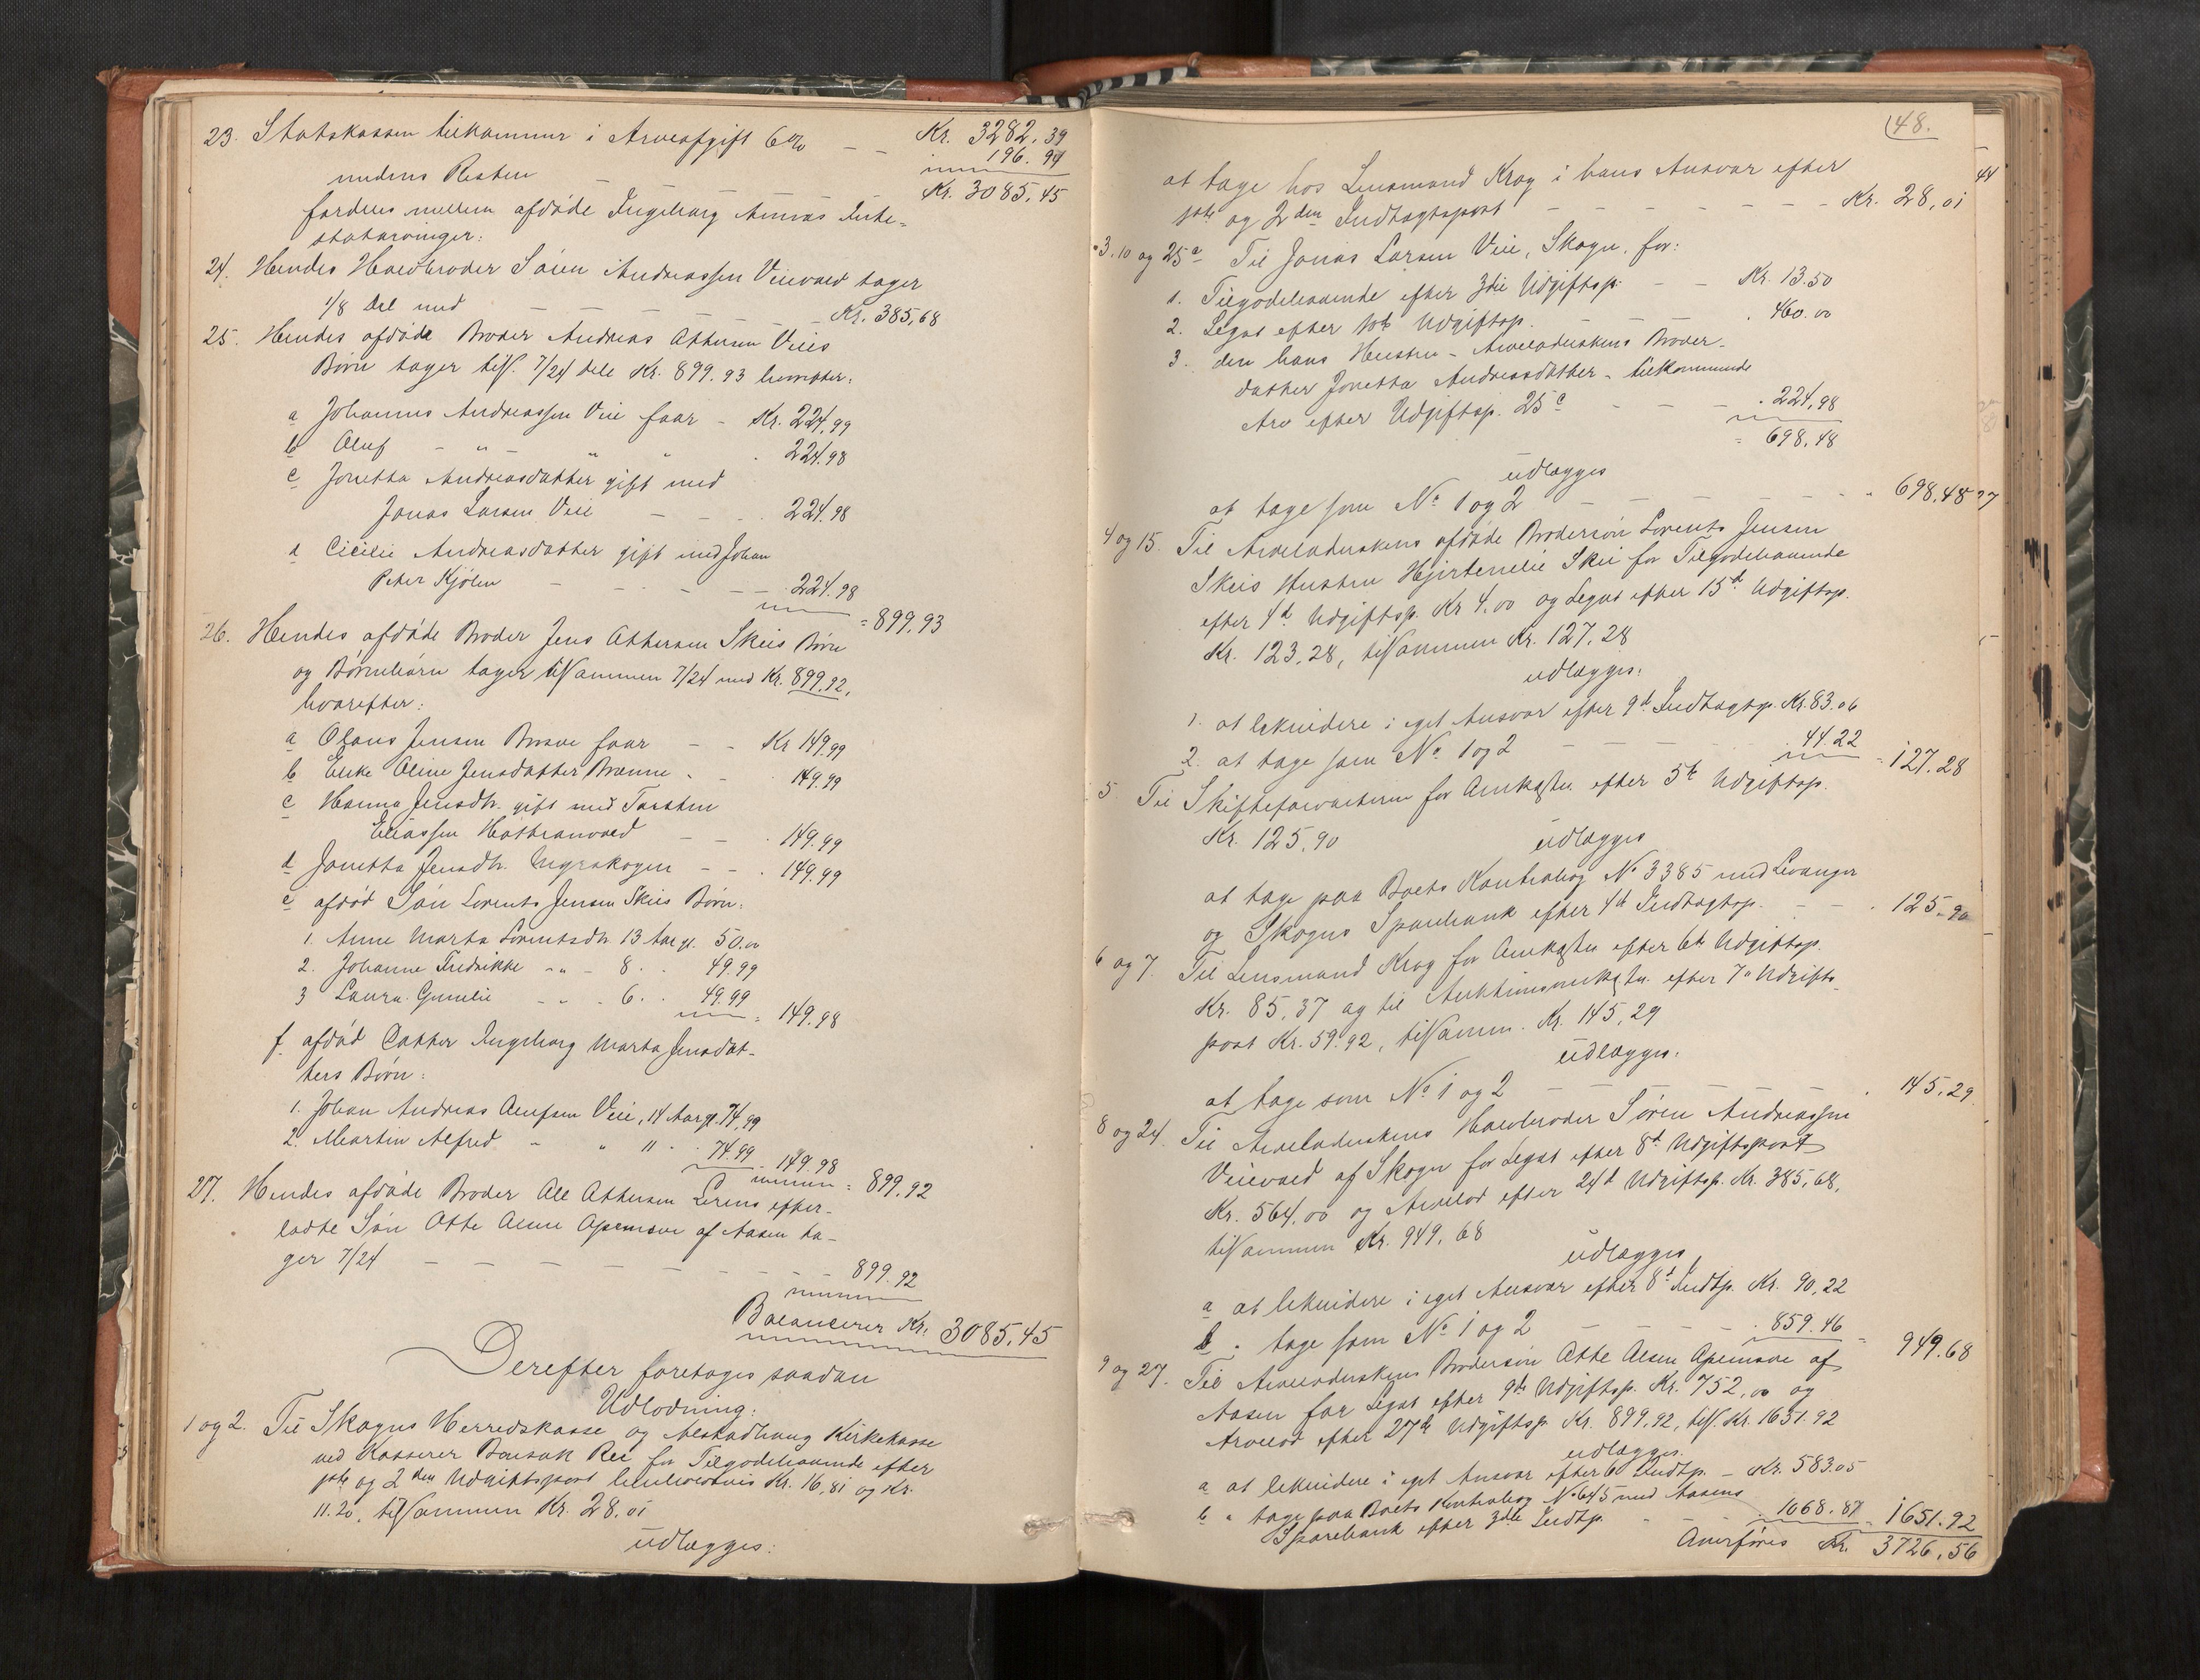 23. Statskassen tilkommer i Arveafgift 6% – – Kr. 3282,39
196.94
medens Resten – Kr. 3085,45
fordeles mellem afdøde Ingeborg Annas Inte-
statarvinger:
24. Hendes Halvbroder Søren Andreassen Veievold tager
1/8 Del med – – – – – Kr. 385,68
25. Hendes afdøde Broder Andreas Attesen Veies
Børn tager till. 7/24 dele Kr. 899.93 hvorefter:
a Johannes Andreassen Veie faar – Kr. 224,99
b Oluf – " – " " . 224.98
c Jonetta Andreasdatter gift med
Jonas Larsen Veie – – – . 224.98
d Cicilie Andreasdatter gift med Johan
Peter Kjølen – – – – – 224.98
= 899,93
26. Hendes afdøde Broder Jens Attesen Skeis Børn
og Børnebørn tager tilsammen 7/24 med Kr. 899.92,
hvorefter:
a Olaus Jensen faar – – Kr 149,99
b Oline Jensdatter – . 149.99
c Hanna Jensdtr. gift med Torsten
Eliassen – – . 149.99
d Jonetta Jensdtr. Myrskogen – – . 149.99
e afdød Søn Lorents Jensen Skeis Børn:
1. Anne Marta Lorentsdtr. 13 Aar gl. 50.00
2. Johanne Fredrikke " – 8 . . 49.99
3 Laura Gunelie – . . 6 . . 49.99
= 149.98
f. afdød Datter Ingeborg Marta Jensdat-
ters Børn:
1. Johan Andreas Olufsen Veie, 14 Aar gl. 74,99
2. Martin Alfred – " 11 . . 74.99 = 149.98
= 899.92
27. Hendes afdøde Broder Ole Attesen efter-
ladte Søn Atte Olsen af Aasen ta-
ger 7/24 – – – – – – – – 899.92
Balancerer Kr. 3085,45
Derefter foretoges saadan
Udlodning:
1 og 2. Til Skogns Herredskasse og Alstadhaug Kirkekasse
ved Kasserer for Tilgodehavende efter
1ste og 2den Udgiftspost henholdsvis Kr. 16,81 og Kr.
11.20, tilsammen Kr. 28,01
udlægges:
48.
at tage hos Lensmand Krog i hans Ansvar efter
1ste og 2den Indtægtspost – – – – – – – Kr. 28,01
3, 10 og 25c Til Jonas Larsen Veie, Skogn, for:
1. Tilgodehavende efter 3die Udgiftsp. – – Kr. 13.50
2. Legat efter 10de Udgiftsp. – – – – . 460.00
3. den hans Hustru – Arveladerskens Broder-
datter Jonetta Andreasdatter – tilkommende
Arv efter Udgiftsp. 25c – – – . 224,98
= 698,48
udlægges
at tage som No 1 og 2 – – – – – – " 698,48
4 og 15. Til Arveladerskens afdøde Brodersøn Lorents Jensen
Skeis Hustru Skei for Tilgodehavende
efter 4de Udgiftsp. Kr 4,00 og Legat efter 15de Udgiftsp.
Kr. 123,28, tilsammen Kr. 127,28
udlægges:
1. at likvidere i eget Ansvar efter 9de Indtægtsp. Kr. 83.06
2. at tage som No 1 og 2 – – – – 44.22
= 127.28
5. Til Skifteforvalteren for Omkostn. efter 5te Udgiftsp.
Kr. 125,90 udlægges
at tage paa Boets Kontrabog No 3385 med Levanger
og Skogns Sparebank efter 4de Indtægtsp. – – . 125,90
6 og 7. Til Lensmand Krog for Omkostn. efter 6te Udgiftsp.
Kr. 85,37 og til Auktionsomkostn. efter 7de Udgifts-
post Kr. 59.92, tilsamm. Kr. 145,29
udlægges:
at tage som No 1 og 2 – – – – – . 145,29
8 og 24. Til Arveladerskens Halvbroder Søren Andreassen
Veievold af Skogn for Legat efter 8de Udgiftspost
Kr. 564,00 og Arvelod efter 24de Udgiftsp. Kr. 385,68,
tilsammen Kr. 949,68
udlægges
a at likvidere i eget Ansvar efter 8de Indtp. Kr. 90,22
b . tage som No 1 og 2 – – – – – . 859.46
= 949.68
9 og 27. Til Arveladerskens Brodersøn Atte Olsen af
Aasen for Legat efter 9de Udgiftsp. Kr. 752,00 og
Arvelod efter 27de Udgiftsp. Kr. 899,92, till. Kr. 1651.92
udlægges:
a at likvidere i eget Ansvar efter 6te Indtp. – Kr. 583.05
b " tage paa Boets Kontrabog No 645 med Aasens
Sparebank efter 3die Indtp. – – . 1068.87 = 1651.92
Overføres Kr. 3726,56